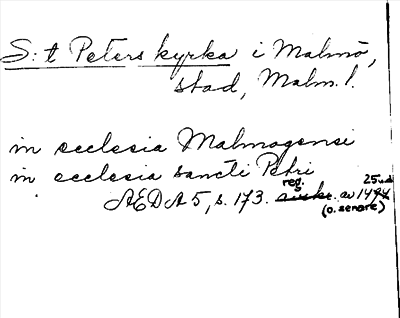 S:t Peters kyrka i Malmö,
stad, Malm. l.
in ecclesia Malmogensi
in ecclesia sancti Petri
AEDA 5, s. 173. reg. av 25 1494
(o. senare)